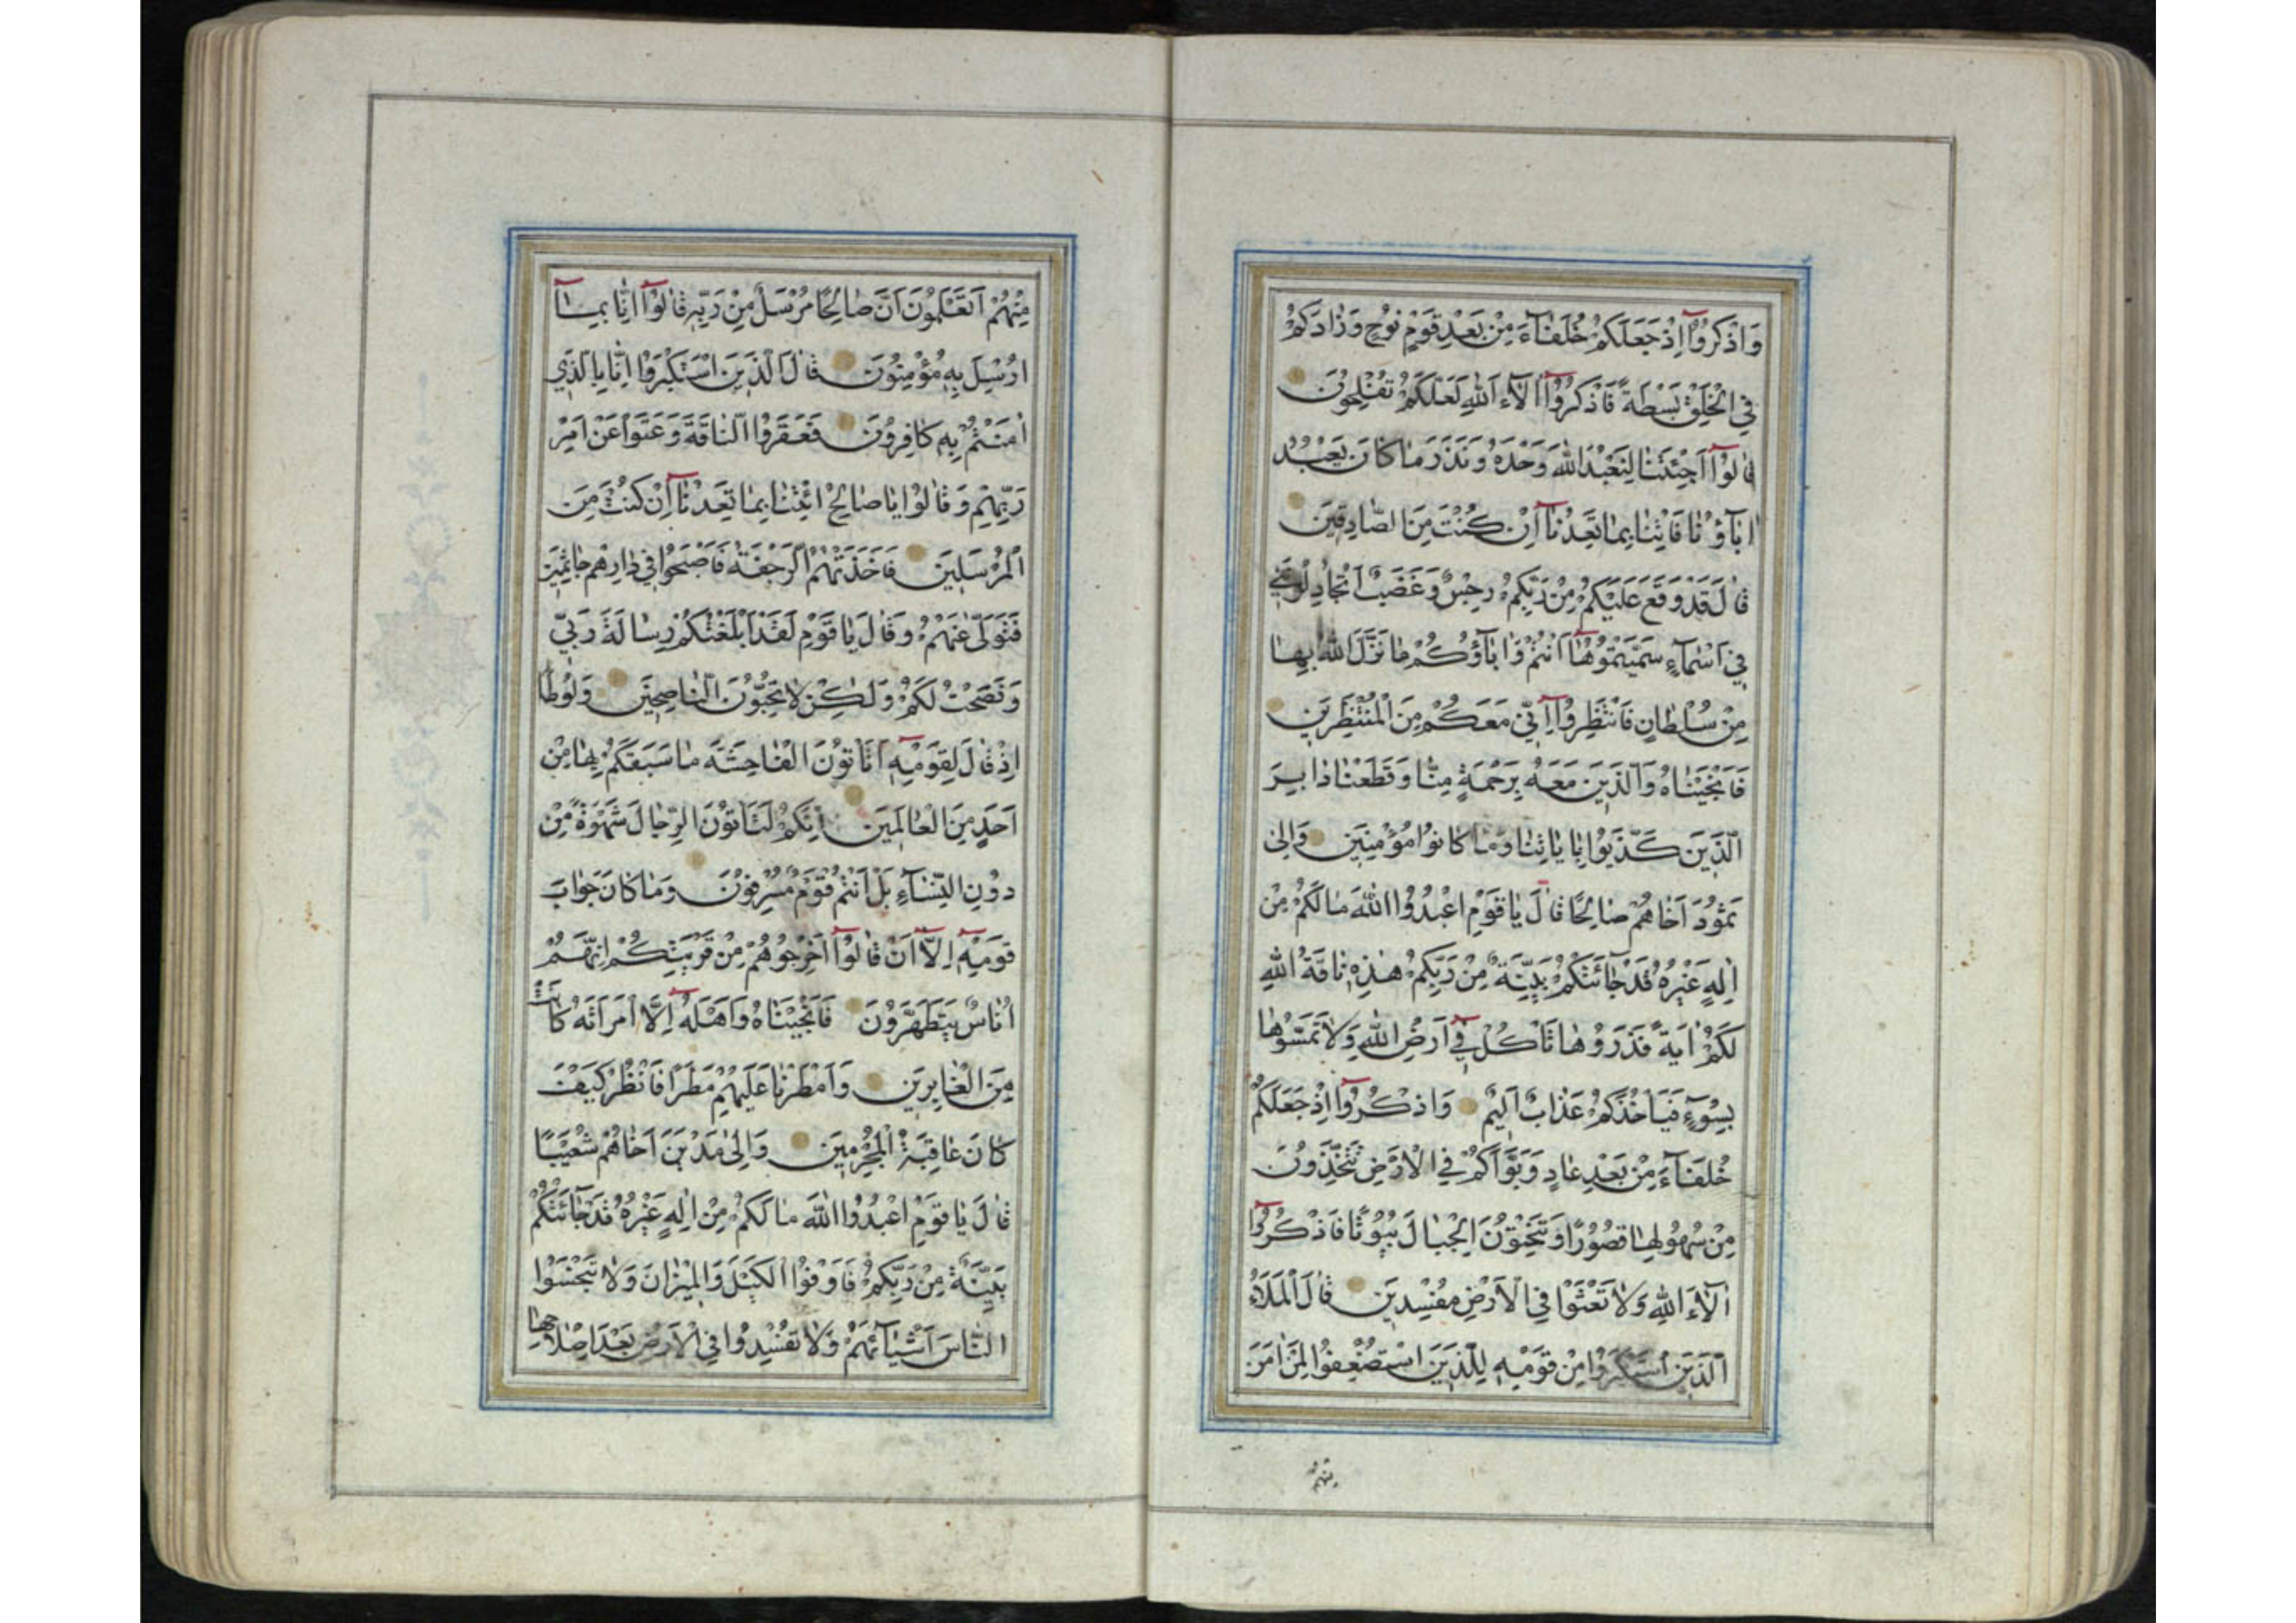 وَاذْكُرُوٓا اِذْ جَعَلَكُمْ خُلَفَآءَ مِنْ بَعْدِ قَوْمِ نُوحٍ وَزَادَكُمْ
فِي الْخَلْقِ بَسْطَةً فَاذْكُرُوٓا اٰلَآءَ اللّٰهِ لَعَلَّكُمْ تُفْلِحُونَ
قَالُوٓا اَجِئْتَنَا لِنَعْبُدَ اللّٰهَ وَحْدَهُ وَنَذَرَ مَا كَانَ يَعْبُدُ
اٰبَآؤُنَا فَأْتِنَا بِمَا تَعِدُنَآ اِنْ كُنْتَ مِنَ الصَّادِقِينَ
قَالَ قَدْ وَقَعَ عَلَيْكُمْ مِنْ رَبِّكُمْ رِجْسٌ وَغَضَبٌ اَتُجَادِلُونَنِي
فِي اَسْمَآءٍ سَمَّيْتُمُوهَآ اَنْتُمْ وَاٰبَآؤُكُمْ مَا نَزَّلَ اللّٰهُ بِهَا
مِنْ سُلْطَانٍ فَانْتَظِرُوٓا اِنِّي مَعَكُمْ مِنَ الْمُنْتَظِرِينَ
فَاَنْجَيْنَاهُ وَالَّذِينَ مَعَهُ بِرَحْمَةٍ مِنَّا وَقَطَعْنَا دَابِرَ
الَّذِينَ كَذَّبُوا بِاٰيَاتِنَا وَمَا كَانُوا مُؤْمِنِينَ وَاِلٰى
ثَمُودَ اَخَاهُمْ صَالِحًا قَالَ يَا قَوْمِ اعْبُدُوا اللّٰهَ مَا لَكُمْ مِنْ
اِلٰهٍ غَيْرُهُ قَدْ جَآئَتْكُمْ بَيِّنَةٌ مِنْ رَبِّكُمْ هٰذِهِ نَاقَةُ اللّٰهِ
لَكُمْ اٰيَةً فَذَرُوهَا تَأْكُلْ فِيٓ اَرْضِ اللّٰهِ وَلَا تَمَسُّوهَا
بِسُوٓءٍ فَيَأْخُذَكُمْ عَذَابٌ اَلِيمٌ وَاذْكُرُوٓا اِذْ جَعَلَكُمْ
خُلَفَآءَ مِنْ بَعْدِ عَادٍ وَبَوَّاَكُمْ فِي الْاَرْضِ تَتَّخِذُونَ
مِنْ سُهُولِهَا قُصُورًا وَتَنْحِتُونَ الْجِبَالَ بُيُوتًا فَاذْكُرُوٓا
اٰلَآءَ اللّٰهِ وَلَا تَعْثَوْا فِي الْاَرْضِ مُفْسِدِينَ قَالَ الْمَلَاُ
الَّذِينَ اسْتَكْبَرُوا مِنْ قَوْمِهِ لِلَّذِينَ اسْتُضْعِفُوا لِمَنْ اٰمَنَ
مِنْهُمْ
مِنْهُمْ اَتَعْلَمُونَ اَنَّ صَالِحًا مُرْسَلٌ مِنْ رَبِّهِ قَالُوٓا اِنَّا بِمَآ
اُرْسِلَ بِهِ مُؤْمِنُونَ قَالَ الَّذِينَ اسْتَكْبَرُوٓا اِنَّا بِالَّذِي
اٰمَنْتُمْ بِهِ كَافِرُونَ فَعَقَرُوا النَّاقَةَ وَعَتَوْا عَنْ اَمْرِ
رَبِّهِمْ وَقَالُوا يَا صَالِحُ ائْتِنَا بِمَا تَعِدُنَآ اِنْ كُنْتَ مِنَ
الْمُرْسَلِينَ فَاَخَذَتْهُمُ الرَّجْفَةُ فَاَصْبَحُوا فِي دَارِهِمْ جَاثِمِينَ
فَتَوَلّٰى عَنْهُمْ وَقَالَ يَا قَوْمِ لَقَدْ اَبْلَغْتُكُمْ رِسَالَةَ رَبِّي
وَنَصَحْتُ لَكُمْ وَلٰكِنْ لَا تُحِبُّونَ النَّاصِحِينَ وَلُوطًا
اِذْ قَالَ لِقَوْمِهِٓ اَتَأْتُونَ الْفَاحِشَةَ مَا سَبَقَكُمْ بِهَا مِنْ
اَحَدٍ مِنَ الْعَالَمِينَ اِنَّكُمْ لَتَأْتُونَ الرِّجَالَ شَهْوَةً مِنْ
دُونِ النِّسَآءِ بَلْ اَنْتُمْ قَوْمٌ مُسْرِفُونَ وَمَا كَانَ جَوَابَ
قَوْمِهِٓ اِلَّآ اَنْ قَالُوٓا اَخْرِجُوهُمْ مِنْ قَرْيَتِكُمْ اِنَّهُمْ
اُنَاسٌ يَتَطَهَّرُونَ فَاَنْجَيْنَاهُ وَاَهْلَهُٓ اِلَّا امْرَاَتَهُ كَانَتْ
مِنَ الْغَابِرِينَ وَاَمْطَرْنَا عَلَيْهِمْ مَطَرًا فَانْظُرْ كَيْفَ
كَانَ عَاقِبَةُ الْمُجْرِمِينَ وَاِلٰى مَدْيَنَ اَخَاهُمْ شُعَيْبًا
قَالَ يَا قَوْمِ اعْبُدُوا اللّٰهَ مَا لَكُمْ مِنْ اِلٰهٍ غَيْرُهُ قَدْ جَآئَتْكُمْ
بَيِّنَةٌ مِنْ رَبِّكُمْ فَاَوْفُوا الْكَيْلَ وَالْمِيزَانَ وَلَا تَبْخَسُوا
النَّاسَ اَشْيَآئَهُمْ وَلَا تُفْسِدُوا فِي الْاَرْضِ بَعْدَ اِصْلَاحِهَا